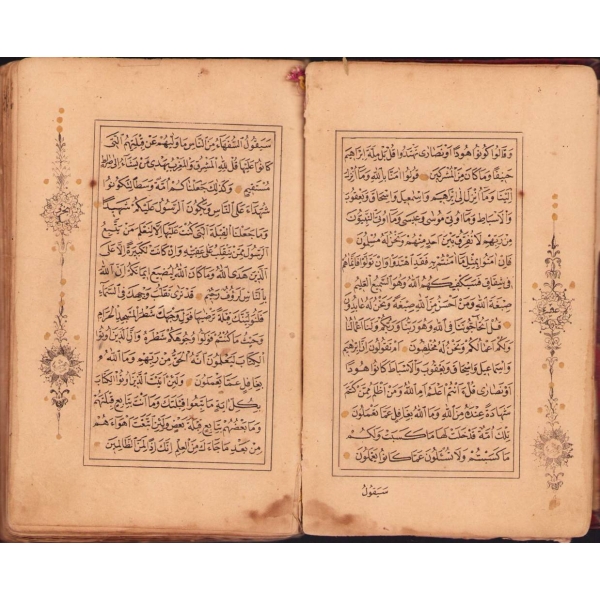 وَقَالُوا كُونُوا هُودًا اَوْ نَصَارٰى تَهْتَدُوا قُلْ بَلْ مِلَّةَ اِبْرٰهِيمَ
حَنِيفًا وَمَا كَانَ مِنَ الْمُشْرِكِينَ قُولُوا اٰمَنَّا بِاللّٰهِ وَمَا اُنْزِلَ
اِلَيْنَا وَمَا اُنْزِلَ اِلٰى اِبْرٰهِيمَ وَاِسْمٰعِيلَ وَاِسْحَاقَ وَيَعْقُوبَ
وَالْاَسْبَاطِ وَمَا اُوتِيَ مُوسٰى وَعِيسٰى وَمَا اُوتِيَ النَّبِيُّونَ
مِنْ رَبِّهِمْ لَا نُفَرِّقُ بَيْنَ اَحَدٍ مِنْهُمْ وَنَحْنُ لَهُ مُسْلِمُونَ
فَاِنْ اٰمَنُوا بِمِثْلِ مَا اٰمَنْتُمْ بِهِ فَقَدِ اهْتَدَوْا وَاِنْ تَوَلَّوْا فَاِنَّمَا هُمْ
فِي شِقَاقٍ فَسَيَكْفِيكَهُمُ اللّٰهُ وَهُوَ السَّمِيعُ الْعَلِيمُ
صِبْغَةَ اللّٰهِ وَمَنْ اَحْسَنُ مِنَ اللّٰهِ صِبْغَةً وَنَحْنُ لَهُ عَابِدُونَ
قُلْ اَتُحَاجُّونَنَا فِي اللّٰهِ وَهُوَ رَبُّنَا وَرَبُّكُمْ وَلَنَا اَعْمَالُنَا
وَلَكُمْ اَعْمَالُكُمْ وَنَحْنُ لَهُ مُخْلِصُونَ اَمْ تَقُولُونَ اِنَّ اِبْرٰهِيمَ
وَاِسْمَاعِيلَ وَاِسْحَاقَ وَيَعْقُوبَ وَالْاَسْبَاطَ كَانُوا هُودًا
اَوْ نَصَارٰى قُلْ ءَاَنْتُمْ اَعْلَمُ اَمِ اللّٰهُ وَمَنْ اَظْلَمُ مِمَّنْ كَتَمَ
شَهَادَةً عِنْدَهُ مِنَ اللّٰهِ وَمَا اللّٰهُ بِغَافِلٍ عَمَّا تَعْمَلُونَ
تِلْكَ اُمَّةٌ قَدْ خَلَتْ لَهَا مَا كَسَبَتْ وَلَكُمْ
مَا كَسَبْتُمْ وَلَا تُسْئَلُونَ عَمَّا كَانُوا يَعْمَلُونَ
سَيَقُولُ
عشر
سَيَقُولُ السُّفَهَاءُ مِنَ النَّاسِ مَا وَلّٰيهُمْ عَنْ قِبْلَتِهِمُ الَّتِي
كَانُوا عَلَيْهَا قُلْ لِلّٰهِ الْمَشْرِقُ وَالْمَغْرِبُ يَهْدِي مَنْ يَشَاءُ اِلٰى صِرَاطٍ
مُسْتَقِيمٍ وَكَذٰلِكَ جَعَلْنَاكُمْ اُمَّةً وَسَطًا لِتَكُونُوا
شُهَدَاءَ عَلَى النَّاسِ وَيَكُونَ الرَّسُولُ عَلَيْكُمْ شَهِيدًا
وَمَا جَعَلْنَا الْقِبْلَةَ الَّتِي كُنْتَ عَلَيْهَا اِلَّا لِنَعْلَمَ مَنْ يَتَّبِعُ
الرَّسُولَ مِمَّنْ يَنْقَلِبُ عَلٰى عَقِبَيْهِ وَاِنْ كَانَتْ لَكَبِيرَةً اِلَّا عَلَى
الَّذِينَ هَدَى اللّٰهُ وَمَا كَانَ اللّٰهُ لِيُضِيعَ اِيمَانَكُمْ اِنَّ اللّٰهَ
بِالنَّاسِ لَرَؤُفٌ رَحِيمٌ قَدْ نَرٰى تَقَلُّبَ وَجْهِكَ فِي السَّمَاءِ
فَلَنُوَلِّيَنَّكَ قِبْلَةً تَرْضٰيهَا فَوَلِّ وَجْهَكَ شَطْرَ الْمَسْجِدِ الْحَرَامِ
وَحَيْثُ مَا كُنْتُمْ فَوَلُّوا وُجُوهَكُمْ شَطْرَهُ وَاِنَّ الَّذِينَ اُوتُوا
الْكِتَابَ لَيَعْلَمُونَ اَنَّهُ الْحَقُّ مِنْ رَبِّهِمْ وَمَا اللّٰهُ
بِغَافِلٍ عَمَّا يَعْمَلُونَ وَلَئِنْ اَتَيْتَ الَّذِينَ اُوتُوا الْكِتَابَ
بِكُلِّ اٰيَةٍ مَا تَبِعُوا قِبْلَتَكَ وَمَا اَنْتَ بِتَابِعٍ قِبْلَتَهُمْ
وَمَا بَعْضُهُمْ بِتَابِعٍ قِبْلَةَ بَعْضٍ وَلَئِنِ اتَّبَعْتَ اَهْوَاءَهُمْ
مِنْ بَعْدِ مَا جَاءَكَ مِنَ الْعِلْمِ اِنَّكَ اِذًا لَمِنَ الظَّالِمِينَ